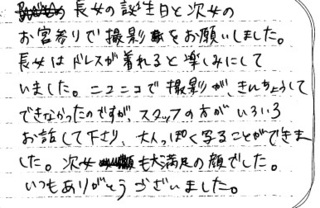 長女の誕生日と次女の
お宮参りで撮影をお願いしました。
長女はドレスが着れると楽しみにして
いました。ニコニコで撮影が、きんちょうして
できなかったのですが、スタッフの方がいろいろ
お話して下さり、大人っぽく写ることができま
した。次女も大満足の顔でした。
いつもありがとうございました。